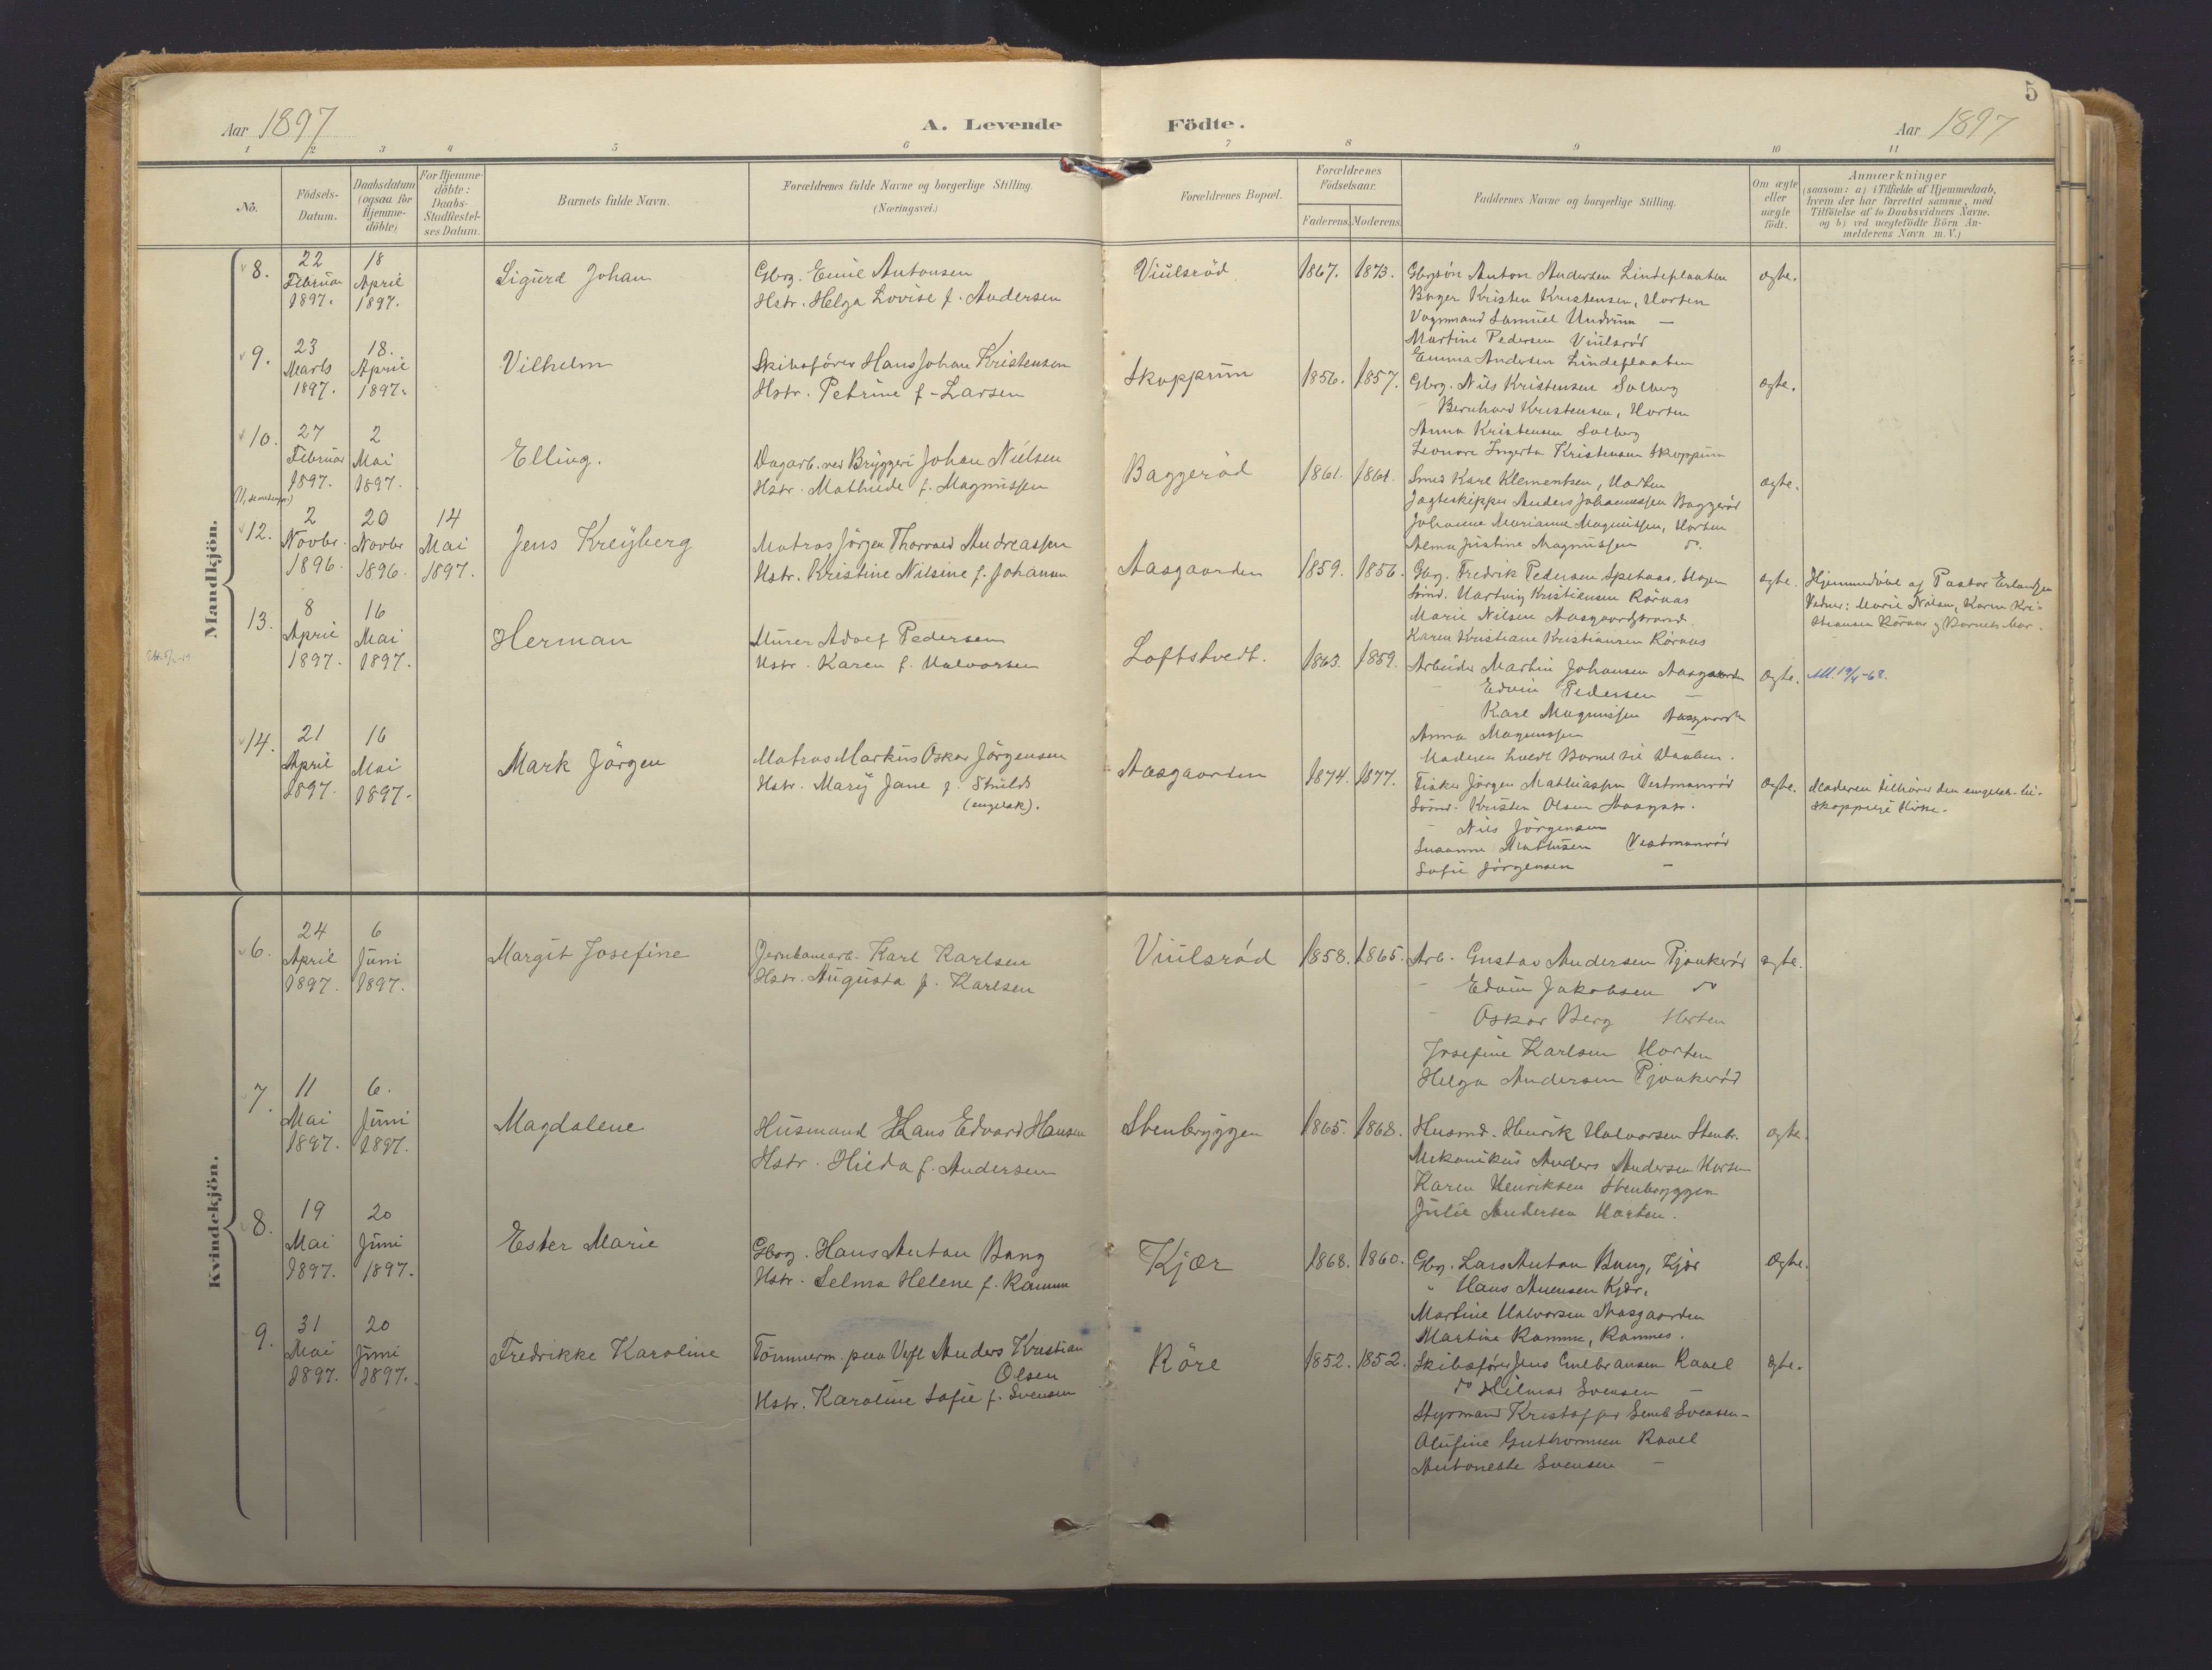 5
Aar 1897
A. Levende
Födte.
Aar 1897
1 2 3 4 5 6 7 8 9 10 11
No.
Födsels-
Datum.
Daabsdatum
(ogsaa for
Hjemme-
döbte)
For Hjemme-
döbte:
Daabs-
Stadfæstel-
ses Datum.
Barnets fulde Navn.
Forældrenes fulde Navne og borgerlige Stilling.
(Næringsvei.)
Forældrenes Bopæl.
Forældrenes
Födselsaar.
Faderens. Moderens.
Faddernes Navne og borgerlige Stilling.
Om ægte
eller
uægte
födt.
Anmærkninger
(saasom: a) i Tilfælde af Hjemmedaab,
hvem der har forrettet samme, med
Tilföielse af to Daabsvidners Navne.
og b) ved uægtefödte Börn An-
melderens Navn m. V.)
Mandkjön.
8.
22
Februar
1897.
18
April
1897.
Sigurd Johan
Gbrg. Emil Antonsen
Hstr. Helga Lovise f. Andersen
Viulsröd
1867. 1873.
Gbrgsön Anton Andersen Lindeplaaten
Bager Kristen Kristensen, Horten
Vognmand Samuel Undrum —
Martine Pedersen Viulsröd
Emma Andersen Lindeplaaten
ægte.
9.
23
Marts
1897.
18.
April
1897.
Vilhelm
Skibsförer Hans Johan Kristensen
Hstr. Petrine f. Larsen
Skoppum
1856. 1857.
Gbrg. Nils Kristensen Solberg
Bernhard Kristensen, Horten
Anna Kristensen Solberg
Leonore Ingerta Kristensen Skoppum
ægte.
10.
27
Februar
1897.
2
Mai
1897.
Elling.
Dagarb. ved Bryggeri Johan Nilsen
Hstr. Mathilde f. Magnussen
Baggeröd
1861. 1861.
Smed Karl Klementsen, Horten
Jagteskipper Anders Johannessen Baggeröd
Johanne Marianne Magnussen, Horten
Alma Justine Magnussen do.
ægte.
12.
2
Novbr.
1896.
20
Novbr
1896.
14
Mai
1897.
Jens Kreyberg
Matros Jörgen Thorvald Andreassen
Hstr. Kristine Nilsine f. Johansen
Aasgaarden
1859. 1856.
Gbrg. Fredrik Pedersen
Sömd. Hartvig Kristiansen Röraas
Marie Nilsen Aasgaardstrand
Karen Kristiane Kristiansen Röraas
ægte.
Hjemmedöbt af Pastor Erlandsen
Vidner: Marie Nilsen, Karen Kri-
stiansen Röraas og Barnets Mor.
13.
8
April
1897.
16
Mai
1897.
Herman
Murer Adolf Pedersen
Hstr. Karen f. Halvorsen
Loftstvedt.
1863. 1859.
Arbeider Martin Johansen Aasgaarden
Edvin Pedersen —
Karl Magnussen Aasgaarden
Anna Magnussen —
Moderen holdt Barnet til Daaben.
ægte.
14.
21
April
1897.
16
Mai
1897.
Mark Jörgen
Matros Markus Oskar Jörgensen
Hstr. Mary Jane f. Shields
(engelsk).
Aasgaarden
1874. 1877.
Fisker Jörgen Mathiassen Vestmanröd
Sömd. Kristen Olsen Aasgstr.
Nils Jörgensen
Susanne Mathisen Vestmanröd
Sofie Jörgensen —
ægte.
Moderen tilhörer den engelsk-bi-
skoppelige Kirke.
Kvindekjön.
6.
24
April
1897.
6
Juni
1897.
Margit Josefine
Jernbanearb. Karl Karlsen
Hstr. Augusta f. Karlsen
Viulsröd
1858. 1865.
Arb. Gustav Andersen Pjonkeröd
Edvin Jakobsen do
Oskar Berg Horten
Josefine Karlsen Horten
Helga Andersen Pjonkeröd
ægte.
7.
11
Mai
1897.
6.
Juni
1897.
Magdalene
Husmand Hans Edvard Hansen
Hstr. Hilda f. Andersen
Stenbryggen
1865. 1868.
Husmd. Henrik Halvorsen Stenbr.
Mekanikus Anders Andersen Horten
Karen Henriksen Stenbryggen
Julie Andersen Horten.
ægte.
8.
19
Mai
1897.
20
Juni
1897.
Ester Marie
Gbrg. Hans Anton Bang
Hstr. Selma Helene f. Ramm
Kjær
1868. 1860.
Gbrg. Lars Anton Bang, Kjær
" Hans Kjær.
Martine Halvorsen Aasgaarden
Martine Ramm, Ramnes.
ægte.
9.
31
Mai
1897.
20
Juni
1897.
Fredrikke Karoline
Tömmerm. paa Verft Anders Kristian
Olsen
Hstr. Karoline Sofie f. Svensen
Röre
1852. 1852.
Skibsförer Jens Gulbransen Raael
do Hilmar Svensen —
Styrmand Kristoffer Svensen —
Olufine Guthormsen Raael
Antonette Svensen —
ægte.